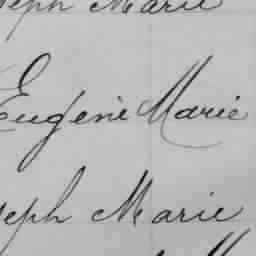 seph Marie
Eugène Marie
seph Marie